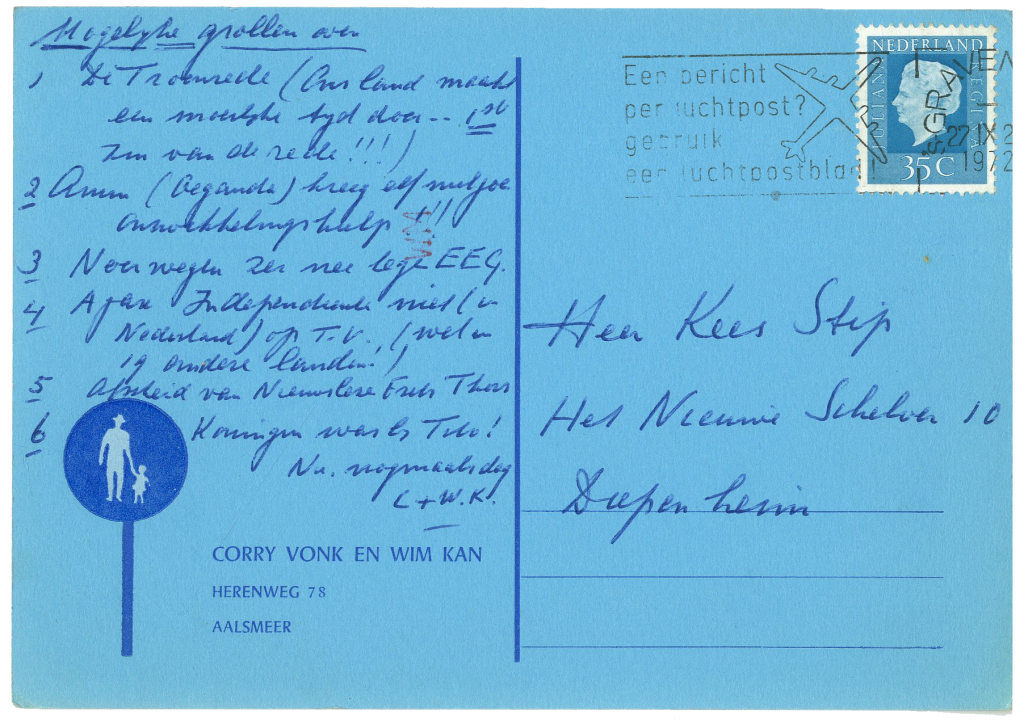 Mogelyke grollen over
1 De Troonrede (Ons land maakt
een moeilyke tyd door -- 1ste
zin van de rede!!!)
2 Amin (Oeganda) kreeg elf miljoen
ontwikkelingshulp !!!
WIM
3 Noorwegen zei nee tegen EEG.
4 Ajax Independiente niet (in
Nederland) op T.V. (wel in
19 andere landen!)
5 Afscheid van Nieuwslezer Frits Thors
6 Koningin was bij Tito!
Nu. nogmaals dag
C + W.K.
CORRY VONK EN WIM KAN
HERENWEG 78
AALSMEER
Een bericht
per luchtpost?
gebruik
een luchtpostblad!
NEDERLAND
JULIANA REGINA
35 C
'S-GRAVEN
27 IX 2
1972
Heer Kees Stip
Het Nieuwe Schelver 10
Diepenheim